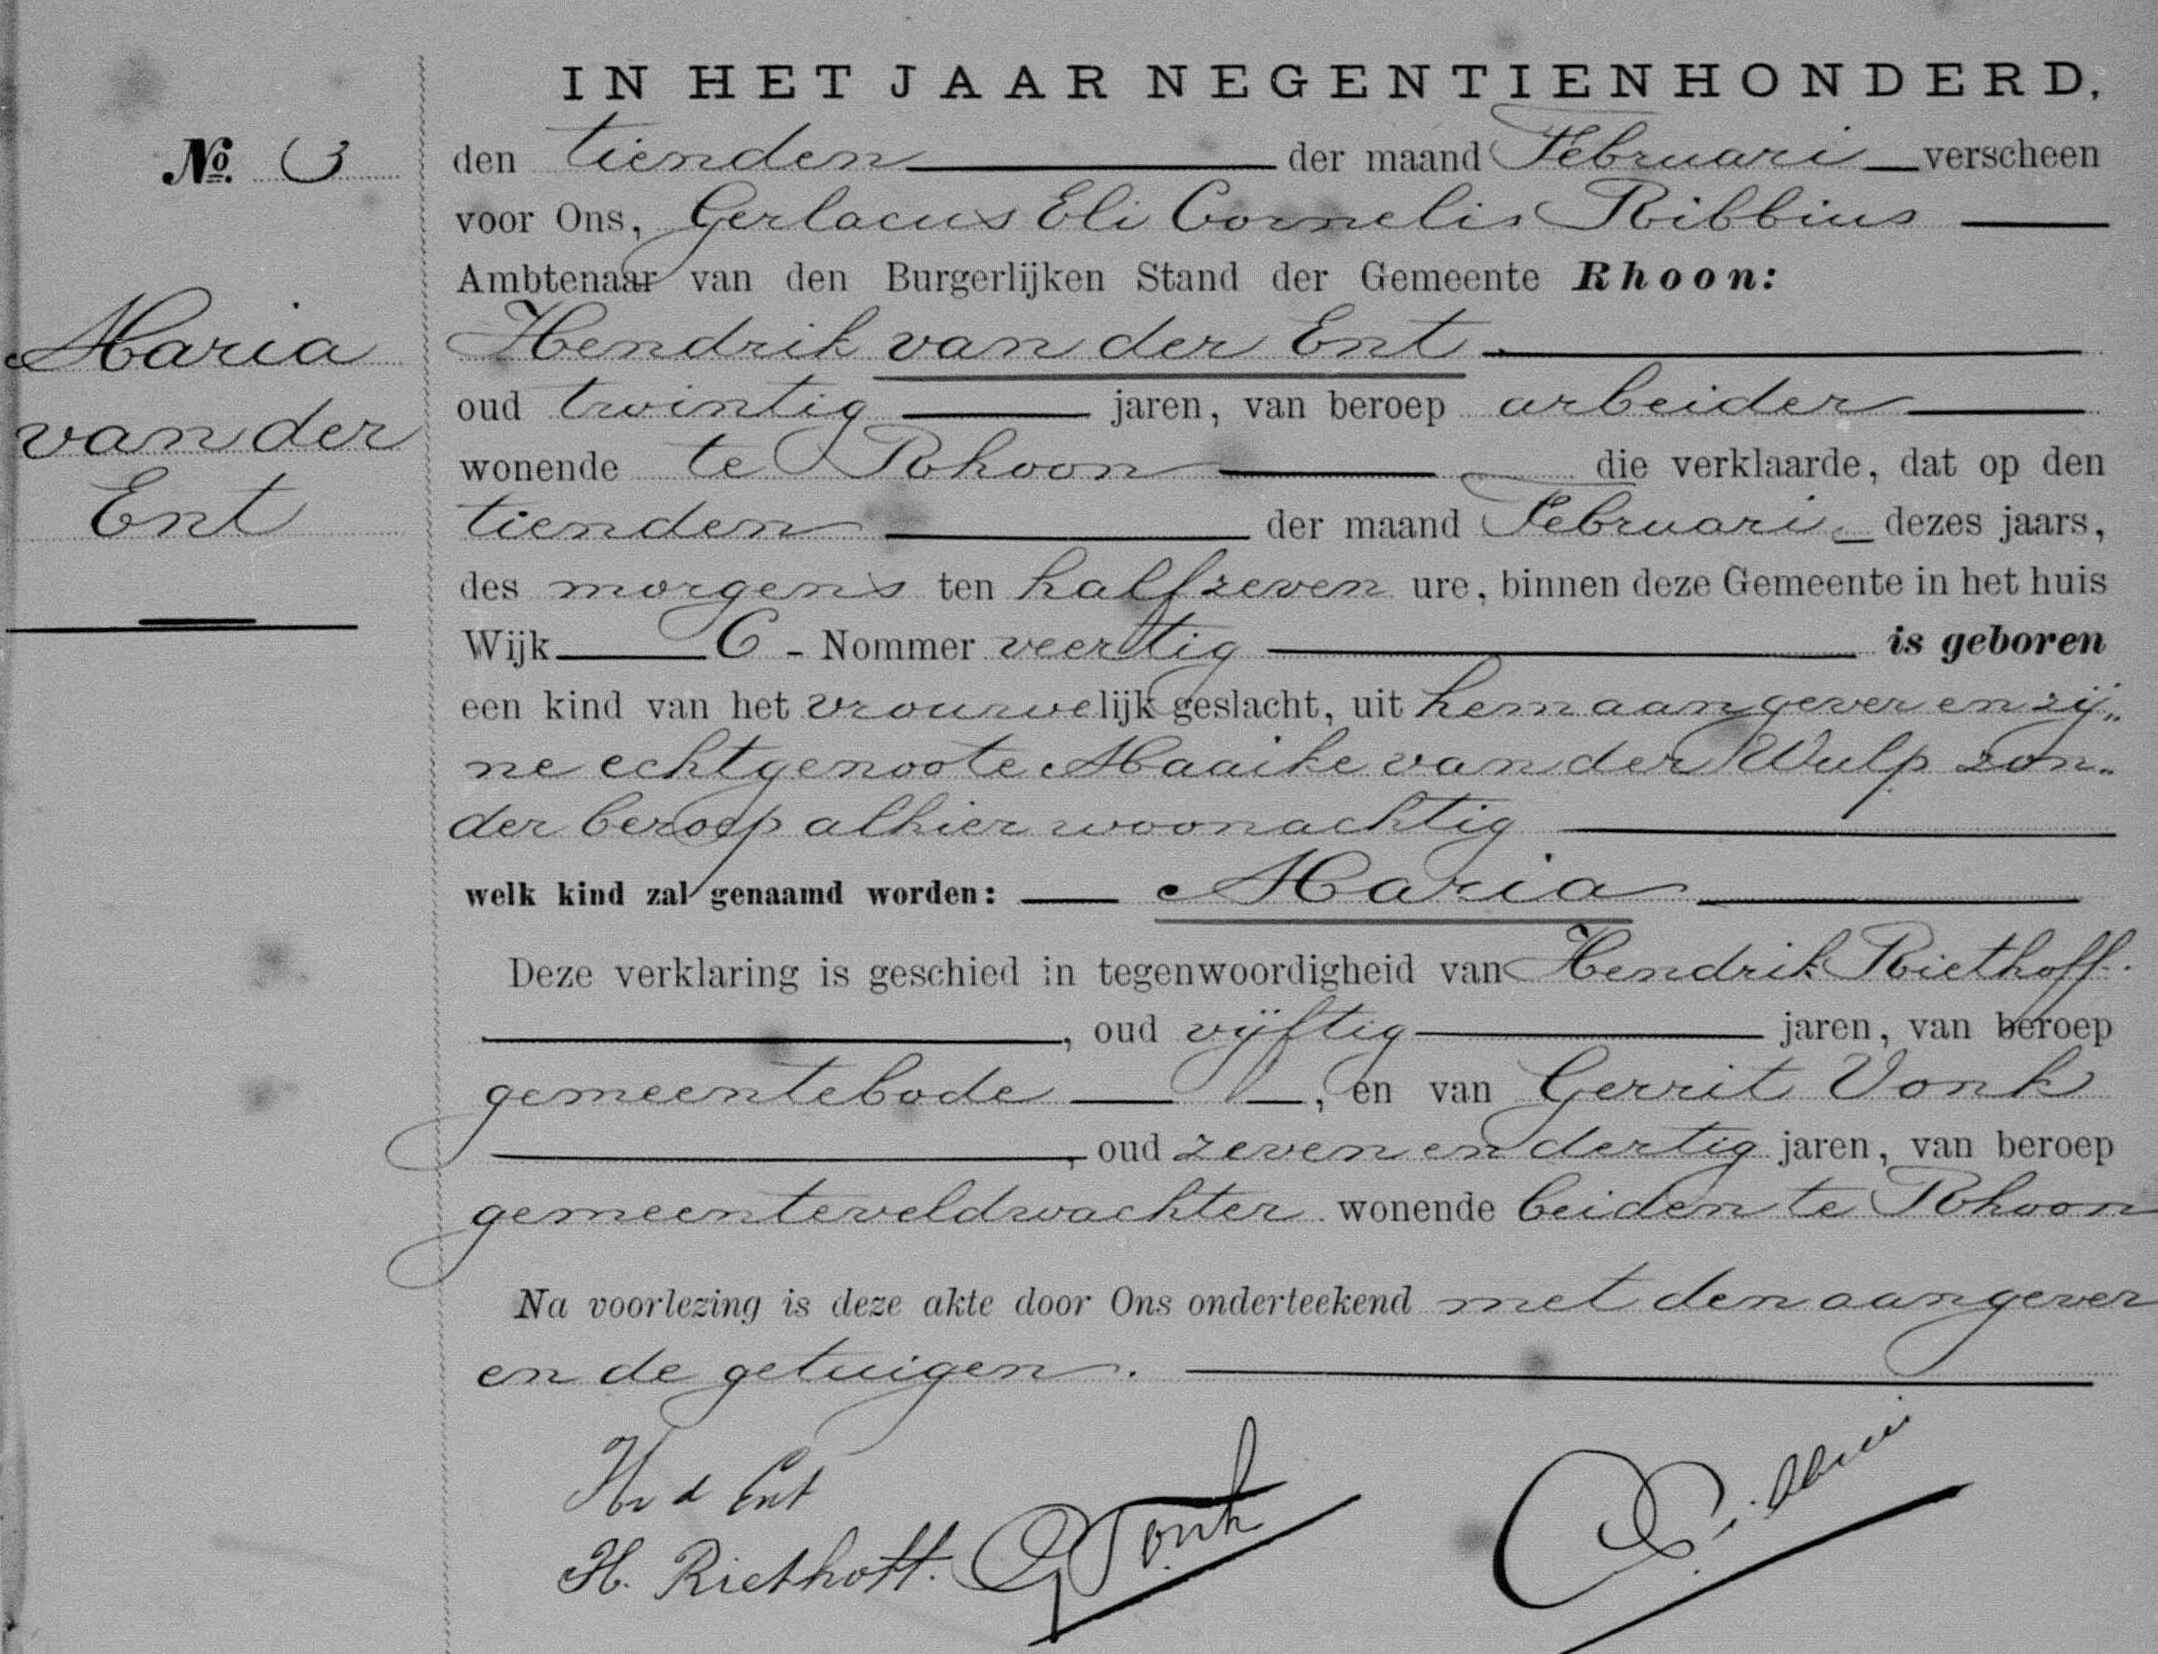 IN HET JAAR NEGENTIENHONDERD,
No. 3
den tienden der maand Februari verscheen
voor Ons, Gerlacus Eli Cornelis Ribbius
Ambtenaar van den Burgerlijken Stand der Gemeente Rhoon:
Maria
van der
Ent
Hendrik van der Ent
oud twintig jaren, van beroep arbeider
wonende te Rhoon die verklaarde, dat op den
tienden der maand Februari dezes jaars,
des morgens ten halfzeven ure, binnen deze Gemeente in het huis
Wijk C - Nommer veertig is geboren
een kind van het vrouwelijk geslacht, uit hem aangever en zij„
ne echtgenoote Maaike van der Wulp zon„
der beroep alhier woonachtig
welk kind zal genaamd worden: Maria
Deze verklaring is geschied in tegenwoordigheid van Hendrik Riethoff.
, oud vijftig jaren, van beroep
gemeentebode , en van Gerrit Vonk
, oud zeven en dertig jaren, van beroep
gemeenteveldwachter wonende beiden te Rhoon
Na voorlezing is deze akte door Ons onderteekend met den aangever
en de getuigen.
H v d Ent
H. Riethoff. G Vonk